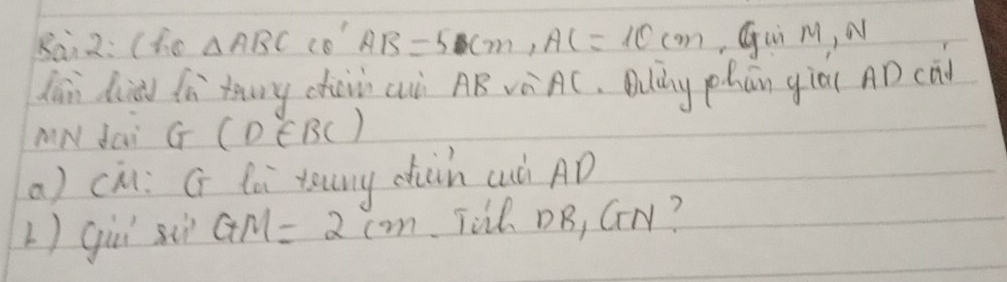 Bài 2: Cho △ABC có AB = 5cm, AC = 10 cm. Gọi M, N
lần lượt là trung điểm của AB và AC. Đường phân giác AD cắt
MN tại G (D ∈ BC)
a) CM: G là trung điểm của AD
b) Giả sử GM = 2 cm. Tính DB, GN?